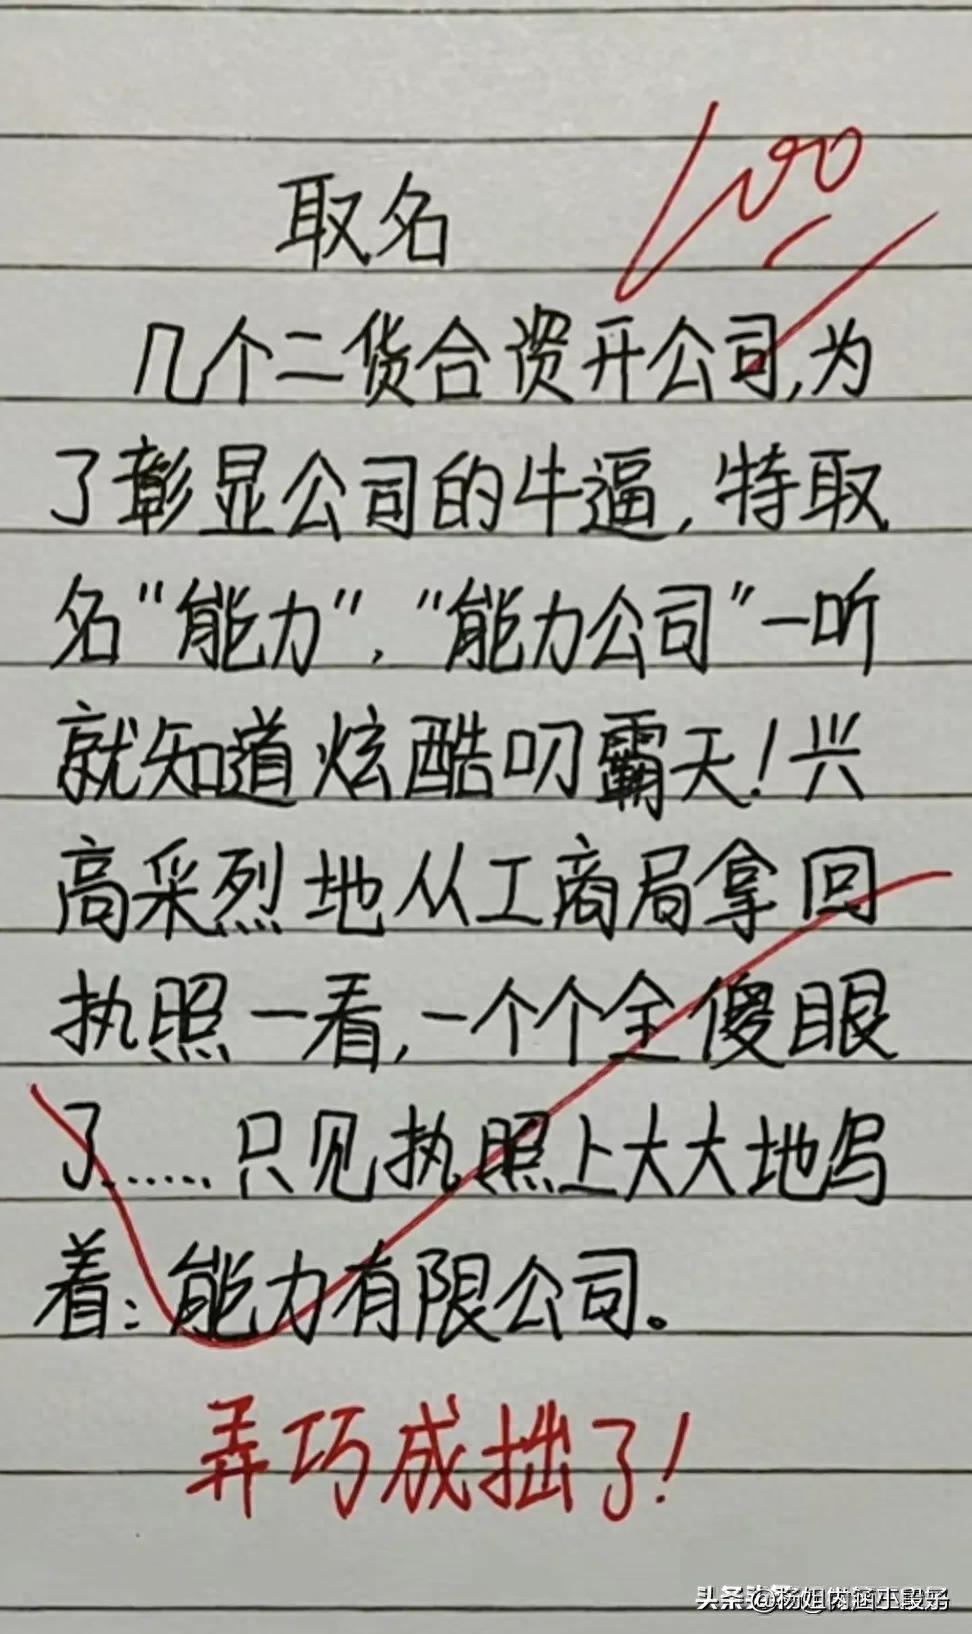 取名
100
几个二货合资开公司,为
了彰显公司的牛逼,特取
名“能力”,“能力公司”一听
就知道炫酷叨霸天!兴
高采烈地从工商局拿回
执照一看,一个个全傻眼
了......只见执照上大大地写
着:能力有限公司。
弄巧成拙了!
头条 @杨姐内涵小段子